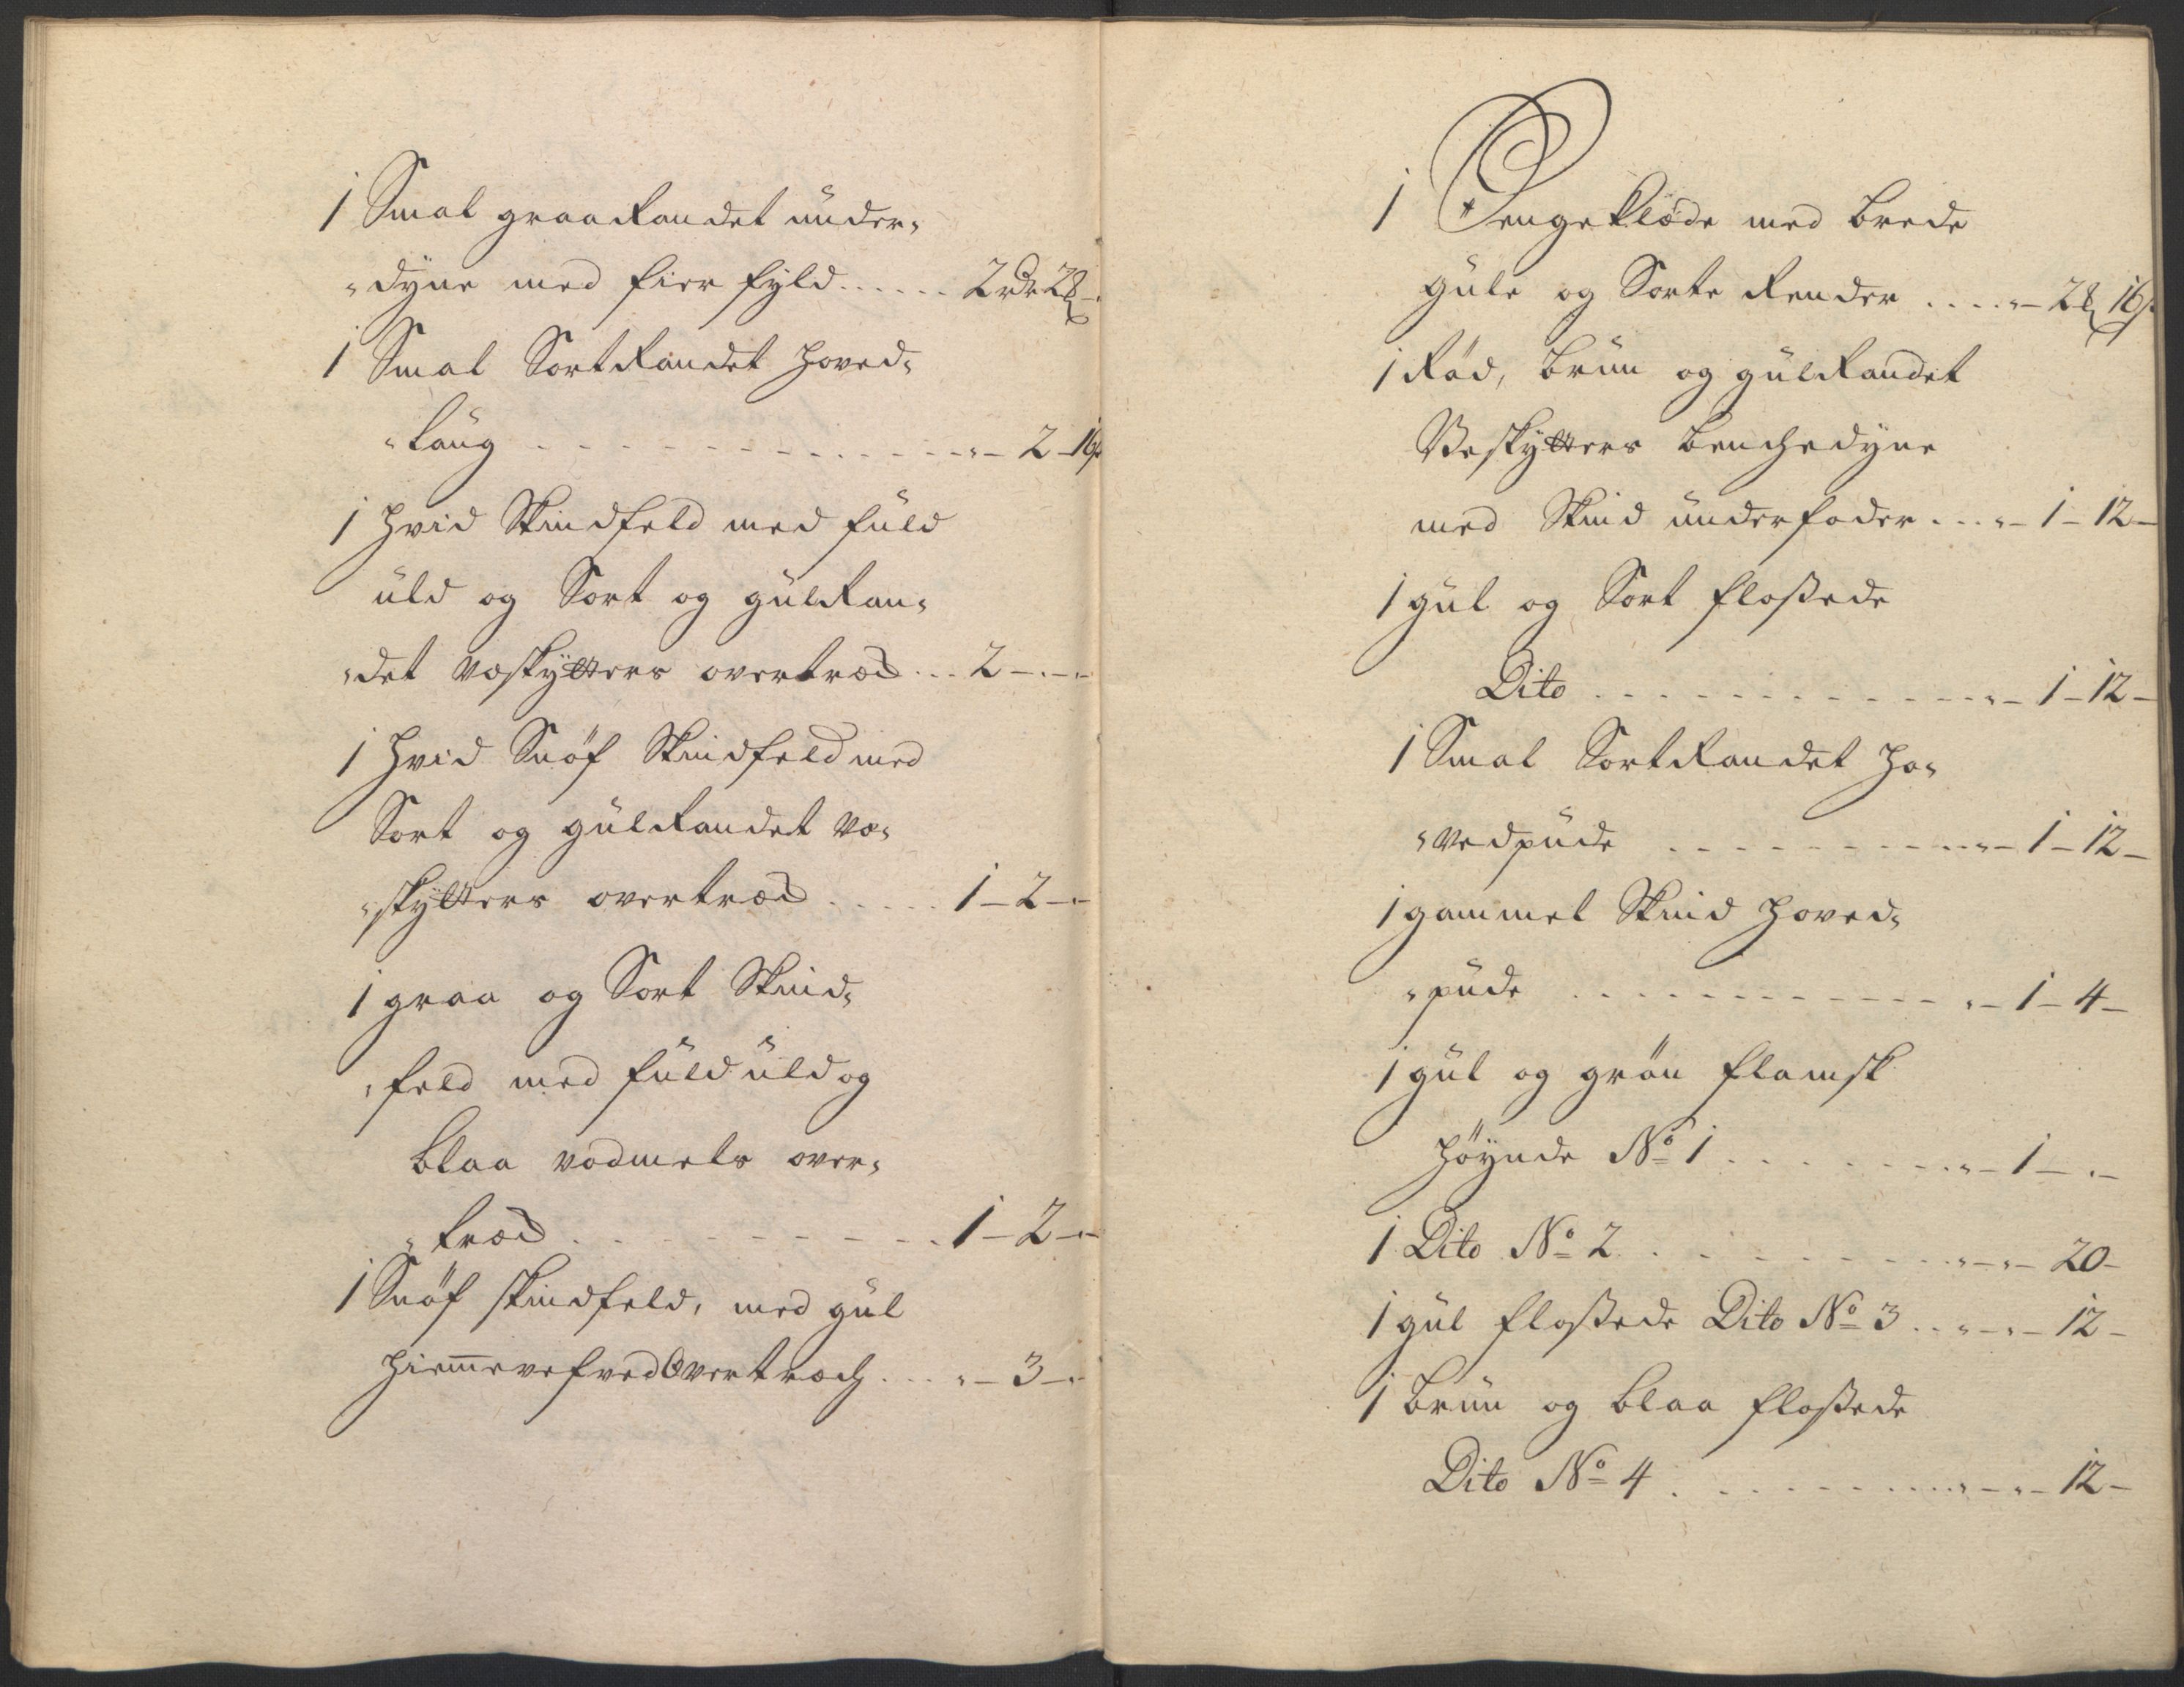 1 Smal graaRandet under-
-dyne med fier fyld ...... 2 rdr 2 ₰ -
1 Smal SortRandet Hoved-
-laug ...... - 2 - 16 s
1 Hvid Skindfeld med fuld
uld og Sort og gulRan-
-det væskytters overtræd ... 2 - . -
1 Hvid Snöf Skindfeld med
Sort og gulRandet væ-
-skytters overtræd ..... 1 - 2 - -
1 graa og Sort Skind-
-feld med fuld uld og
blaa vadmels over-
-træd ...... 1 - 2 - -
1 Snöf skindfeld, med gul
Hiem̅evefved Overtræch .... - 3 - -
1 Sengeklæde med brede
gule og Sorte Render .... - 2 ₰ 16 s
1 Röd, brun og gulRandet
Veskytters benchedyne
med Skind underfoder ... - 1 - 12 -
1 gul og Sort floßede
Dito ...... - 1 - 12 -
1 Smal SortRandet Ho-
-vedpude ...... - 1 - 12 -
1 gammel Skind Hoved-
-pude ...... - 1 - 4 -
1 gul og grön flamsk
Höynde No 1 ...... - 1 - . -
1 Dito No 2 ...... - - 20 -
1 gul floßede Dito No 3 .. - - 12 -
1 brun og blaa floßede
Dito No 4 ...... - - 12 -